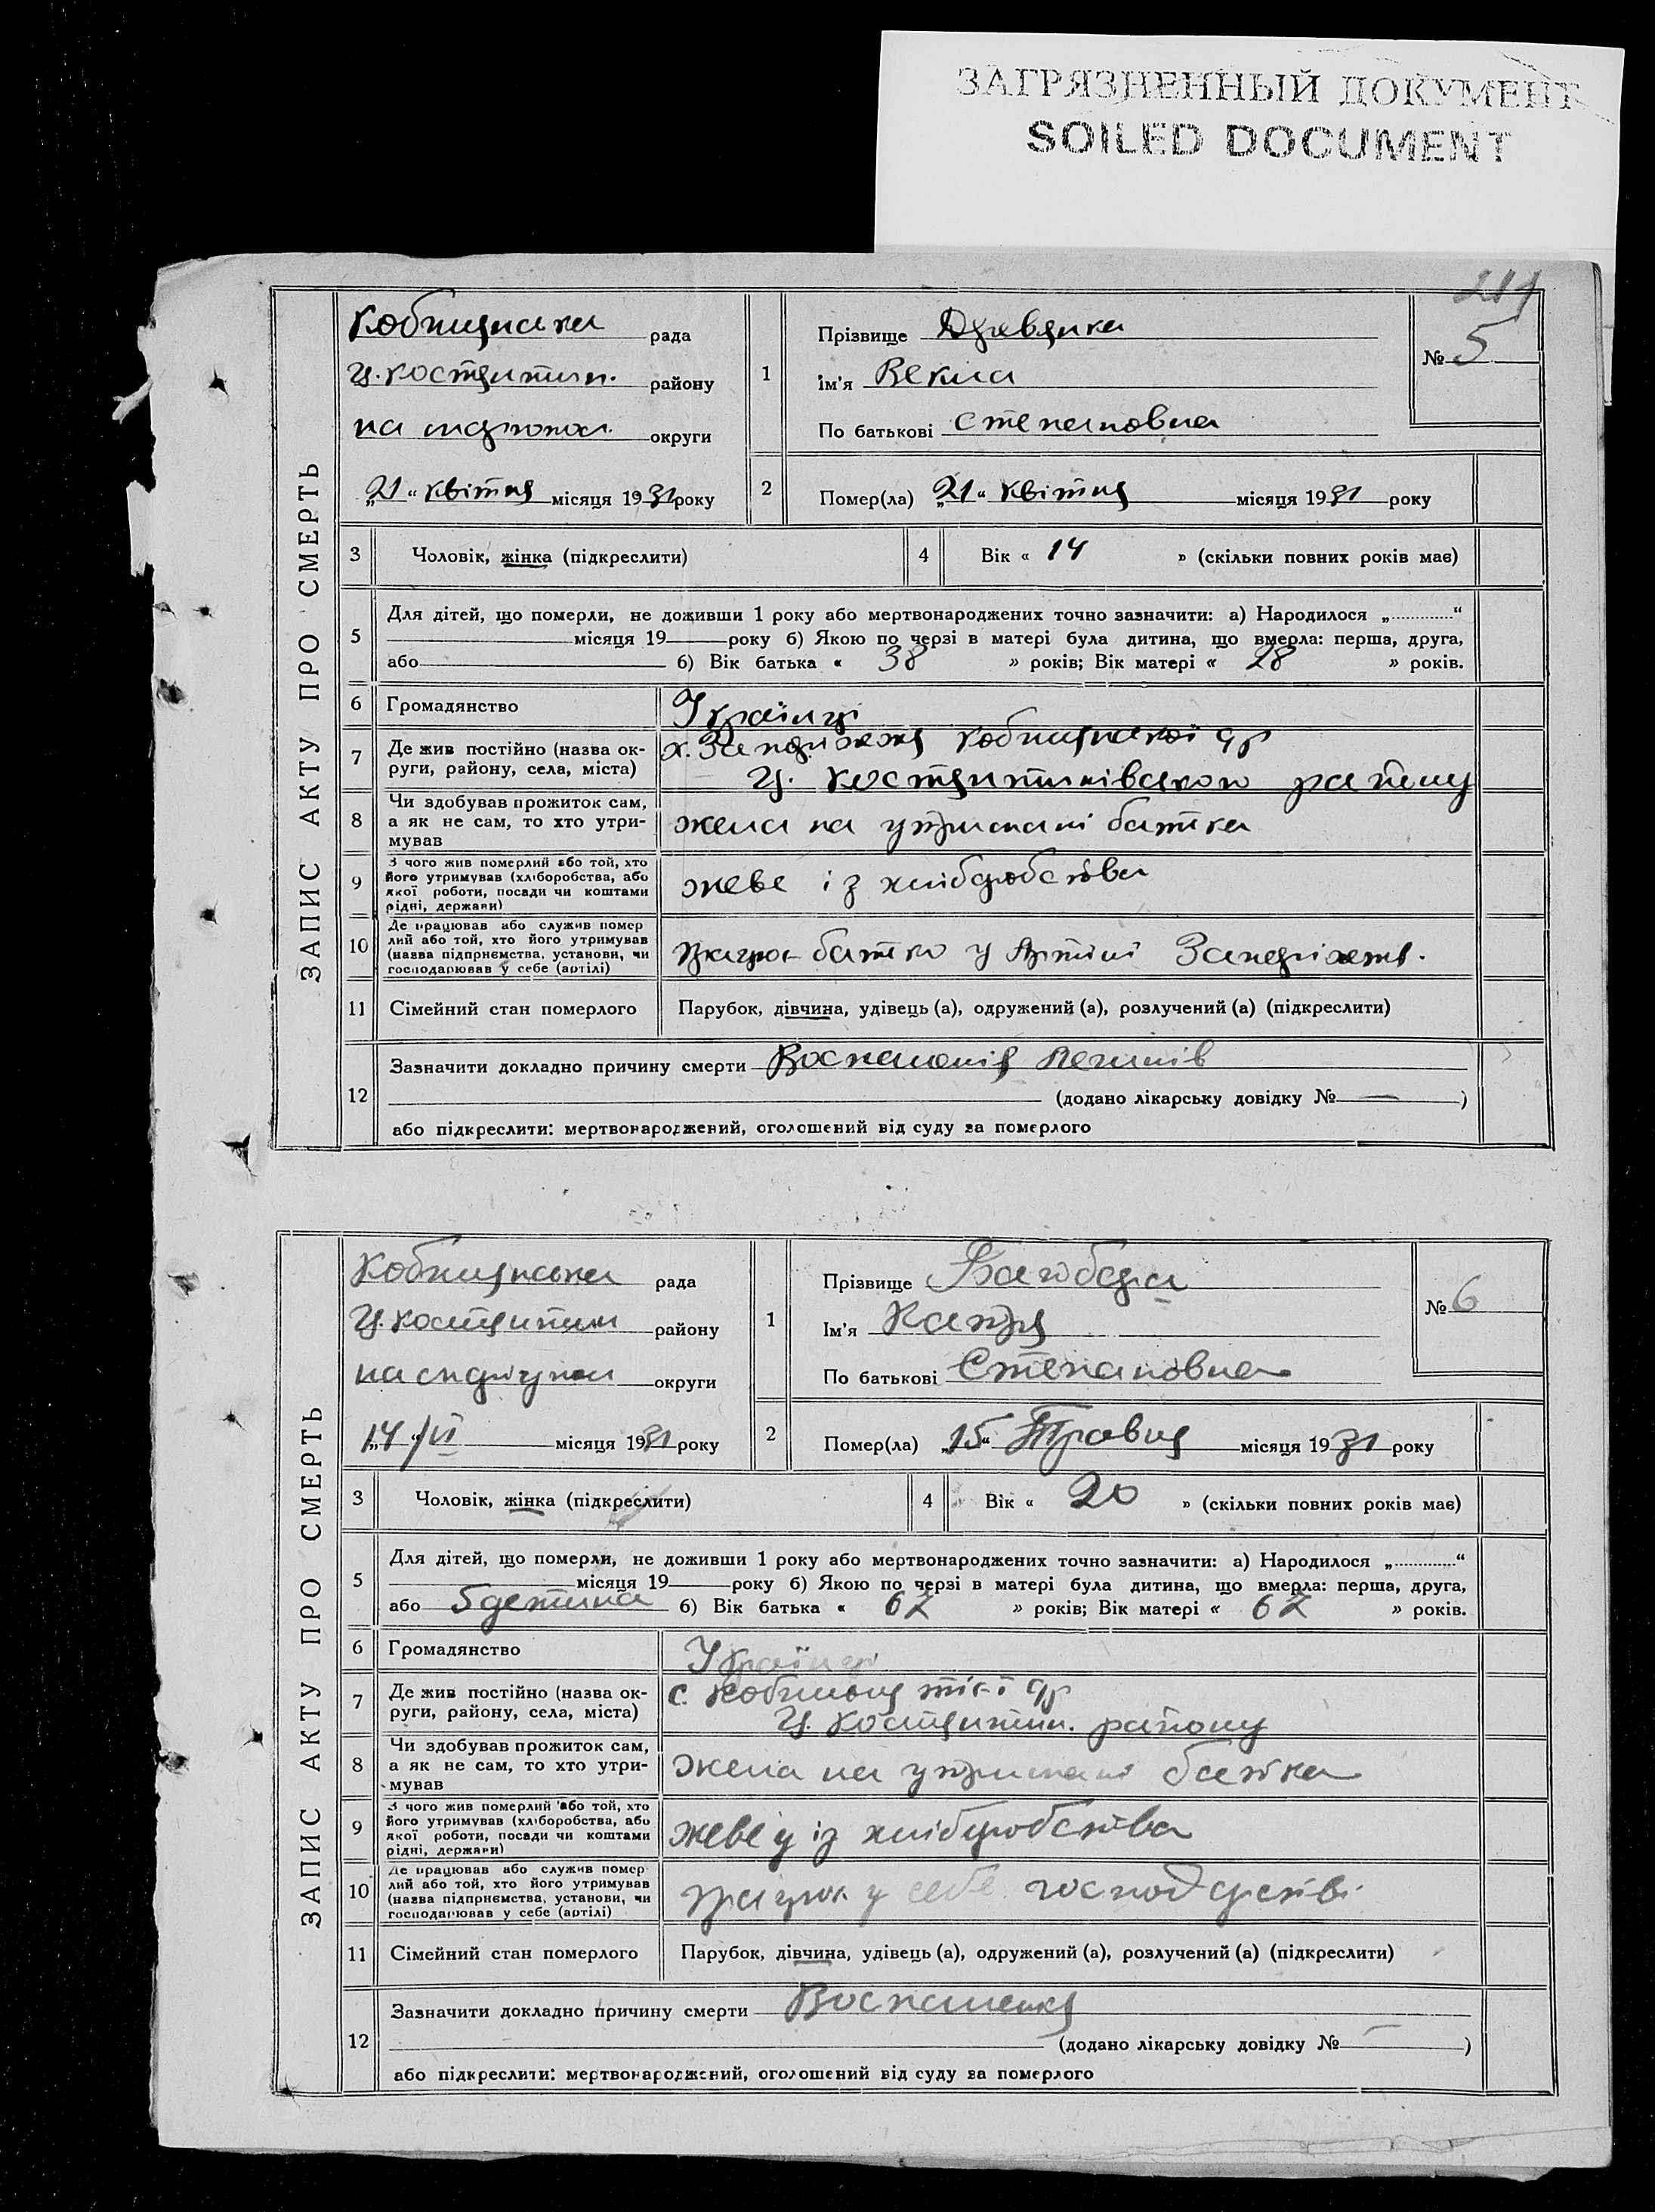 ЗАГРЯЗНЕННЫЙ ДОКУМЕНТ
SOILED DOCUMENT
211
ЗАПИС АКТУ ПРО СМЕРТЬ
рада
району
округи
„21“ квітня місяця 1931 року
1
Прізвище
Ім'я Векла
По батькові Степановна
№ 5
2
Помер(ла) „21“ квітня місяця 1931 року
3 Чоловік, жінка (підкреслити)
4 Вік « 14 » (скільки повних років має)
5
Для дітей, що померли, не доживши 1 року або мертвонароджених точно зазначити: а) Народилося „............“
місяця 19 року б) Якою по черзі в матері була дитина, що вмерла: перша, друга,
або б) Вік батька « 38 » років; Вік матері « 28 » років.
6 Громадянство Українці
7
Де жив постійно (назва ок-
руги, району, села, міста)
х.
району
8
Чи здобував прожиток сам,
а як не сам, то хто утри-
мував
жела на утримані батька
9
З чого жив померлий або той, хто
його утримував (хліборобства, або
якої роботи, посади чи коштами
рідні, держави)
жеве із хліборобства
10
Де працював або служив помер
лий або той, хто його утримував
(назва підприємства, установи, чи
господарював у себе (артілі)
батько у Артілі
11 Сімейний стан померлого Парубок, дівчина, удівець (а), одружений (а), розлучений (а) (підкреслити)
12
Зазначити докладно причину смерти Воспаленія легків
(додано лікарську довідку № — )
або підкреслити: мертвонароджений, оголошений від суду за померлого
ЗАПИС АКТУ ПРО СМЕРТЬ
рада
району
округи
„14“/VI місяця 1931 року
1
Прізвище
Ім'я Катря
По батькові Степановна
№ 6
2
Помер(ла) „15“ Травня місяця 1931 року
3 Чоловік, жінка (підкреслити)
4 Вік « 20 » (скільки повних років має)
5
Для дітей, що померли, не доживши 1 року або мертвонароджених точно зазначити: а) Народилося „............“
місяця 19 року б) Якою по черзі в матері була дитина, що вмерла: перша, друга,
або 5 детина б) Вік батька « 67 » років; Вік матері « 67 » років.
6 Громадянство Українці
7
Де жив постійно (назва ок-
руги, району, села, міста)
с.
району
8
Чи здобував прожиток сам,
а як не сам, то хто утри-
мував
жела на утримані батька
9
З чого жив померлий або той, хто
його утримував (хліборобства, або
якої роботи, посади чи коштами
рідні, держави)
із хліборобства
10
Де працював або служив помер
лий або той, хто його утримував
(назва підприємства, установи, чи
господарював у себе (артілі)
у себе господарстві
11 Сімейний стан померлого Парубок, дівчина, удівець (а), одружений (а), розлучений (а) (підкреслити)
12
Зазначити докладно причину смерти
(додано лікарську довідку № — )
або підкреслити: мертвонароджений, оголошений від суду за померлого